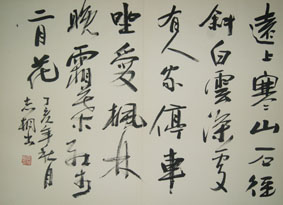 遠上寒山石徑
斜白雲深處
有人家停車
坐愛楓林
晚霜葉紅於
二月花
丁亥年秋月
志桐书